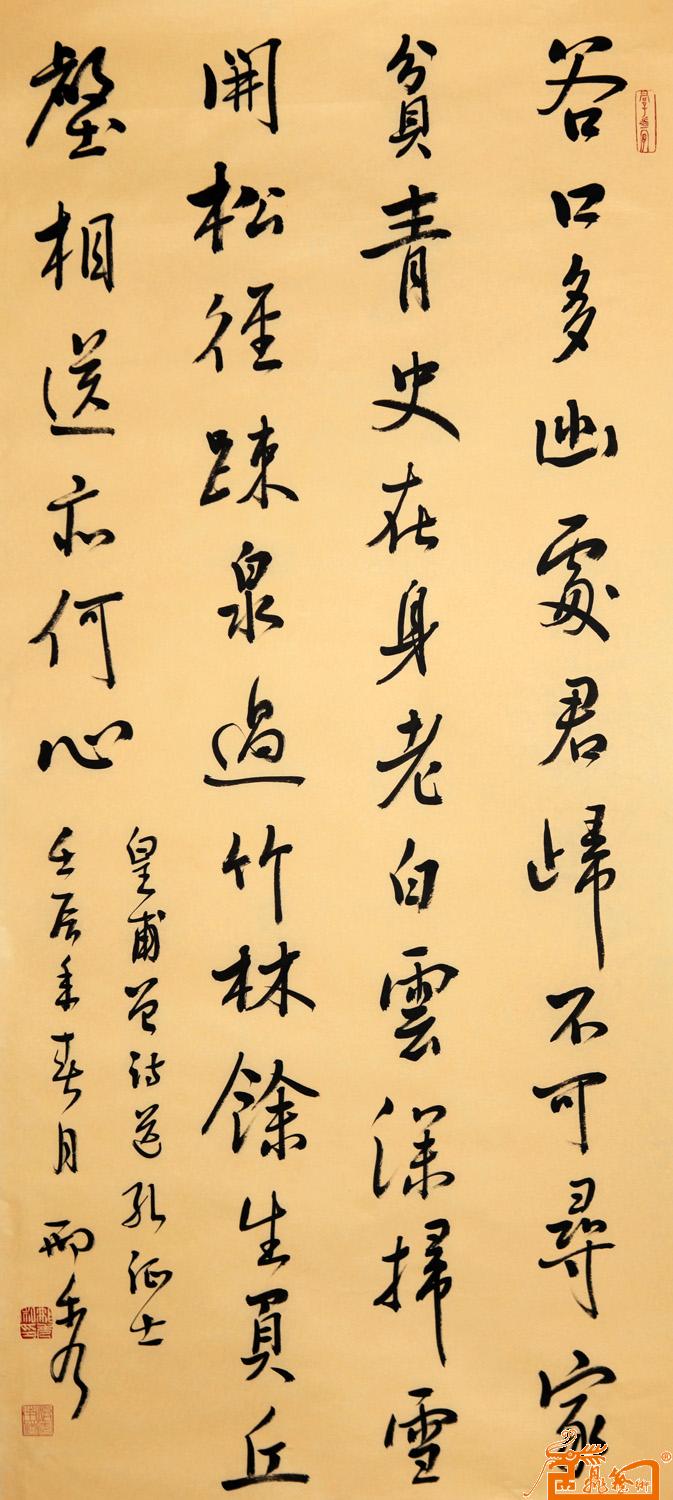 谷口多幽處君歸不可尋家
貧青史在身老白雲深掃雪
開松徑踈泉過竹林餘生負丘
壑相送亦何心
皇甫曾诗送孔征士
壬辰年春月 邢